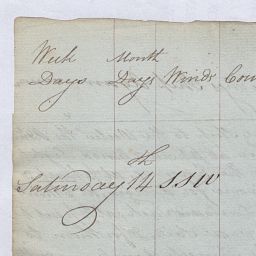 Week Month
Days Days Winds Cou
Saturday 14th SSW